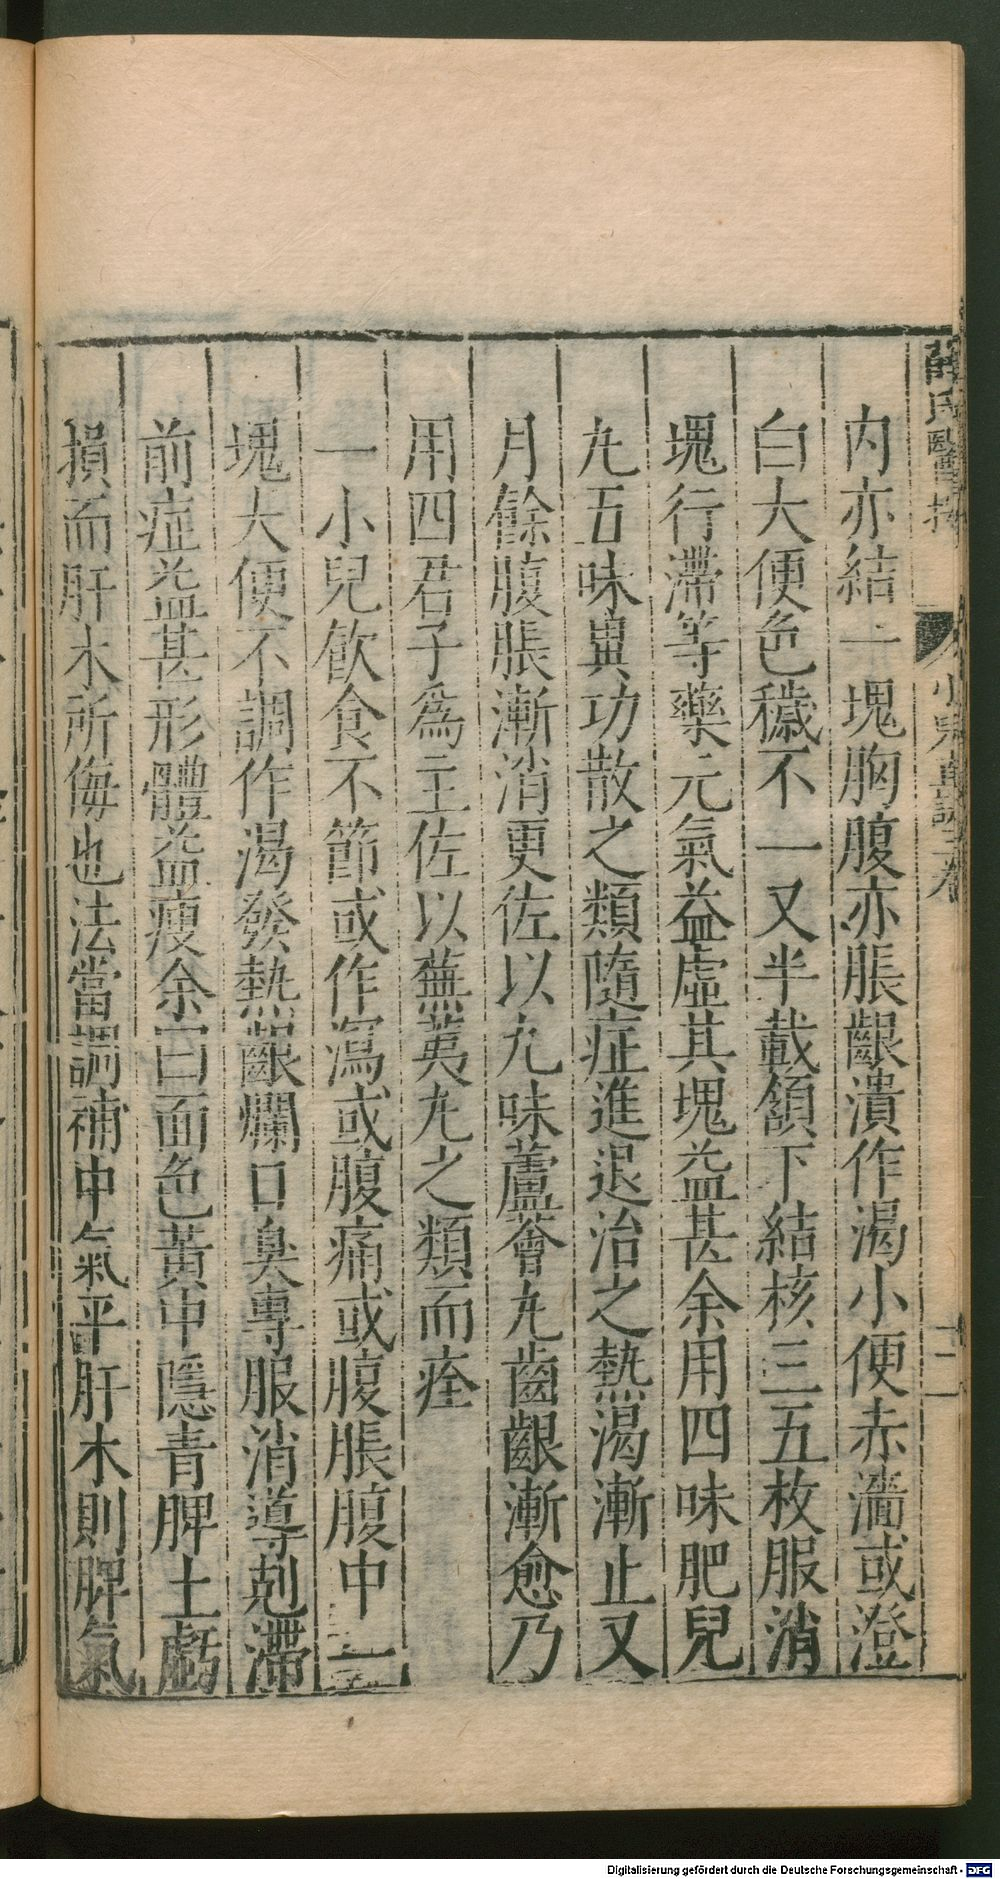 薛氏醫按 小兒 二卷 十二
内亦結一塊胸腹亦脹齦潰作渴小便赤濇或澄
白大便色穢不一又半載頷下結核三五枚服消
塊行滯等藥元氣益虛其塊益甚余用四味肥兒
丸五味異功散之類隨症進退治之熱渴漸止又
月餘腹脹漸消更佐以九味蘆薈丸齒齦漸愈乃
用四君子爲主佐以蕪荑丸之類而痊
一小兒飮食不節或作瀉或腹痛或腹脹腹中一
塊大便不調作渴發熱齦爛口臭專服消導剋滯
前症益甚形體益瘦余曰面色黃中隱青脾土虧
損而肝木所侮也法當調補中氣平肝木則脾氣
Digitalisierung gefördert durch die Deutsche Forschungsgemeinschaft - DFG